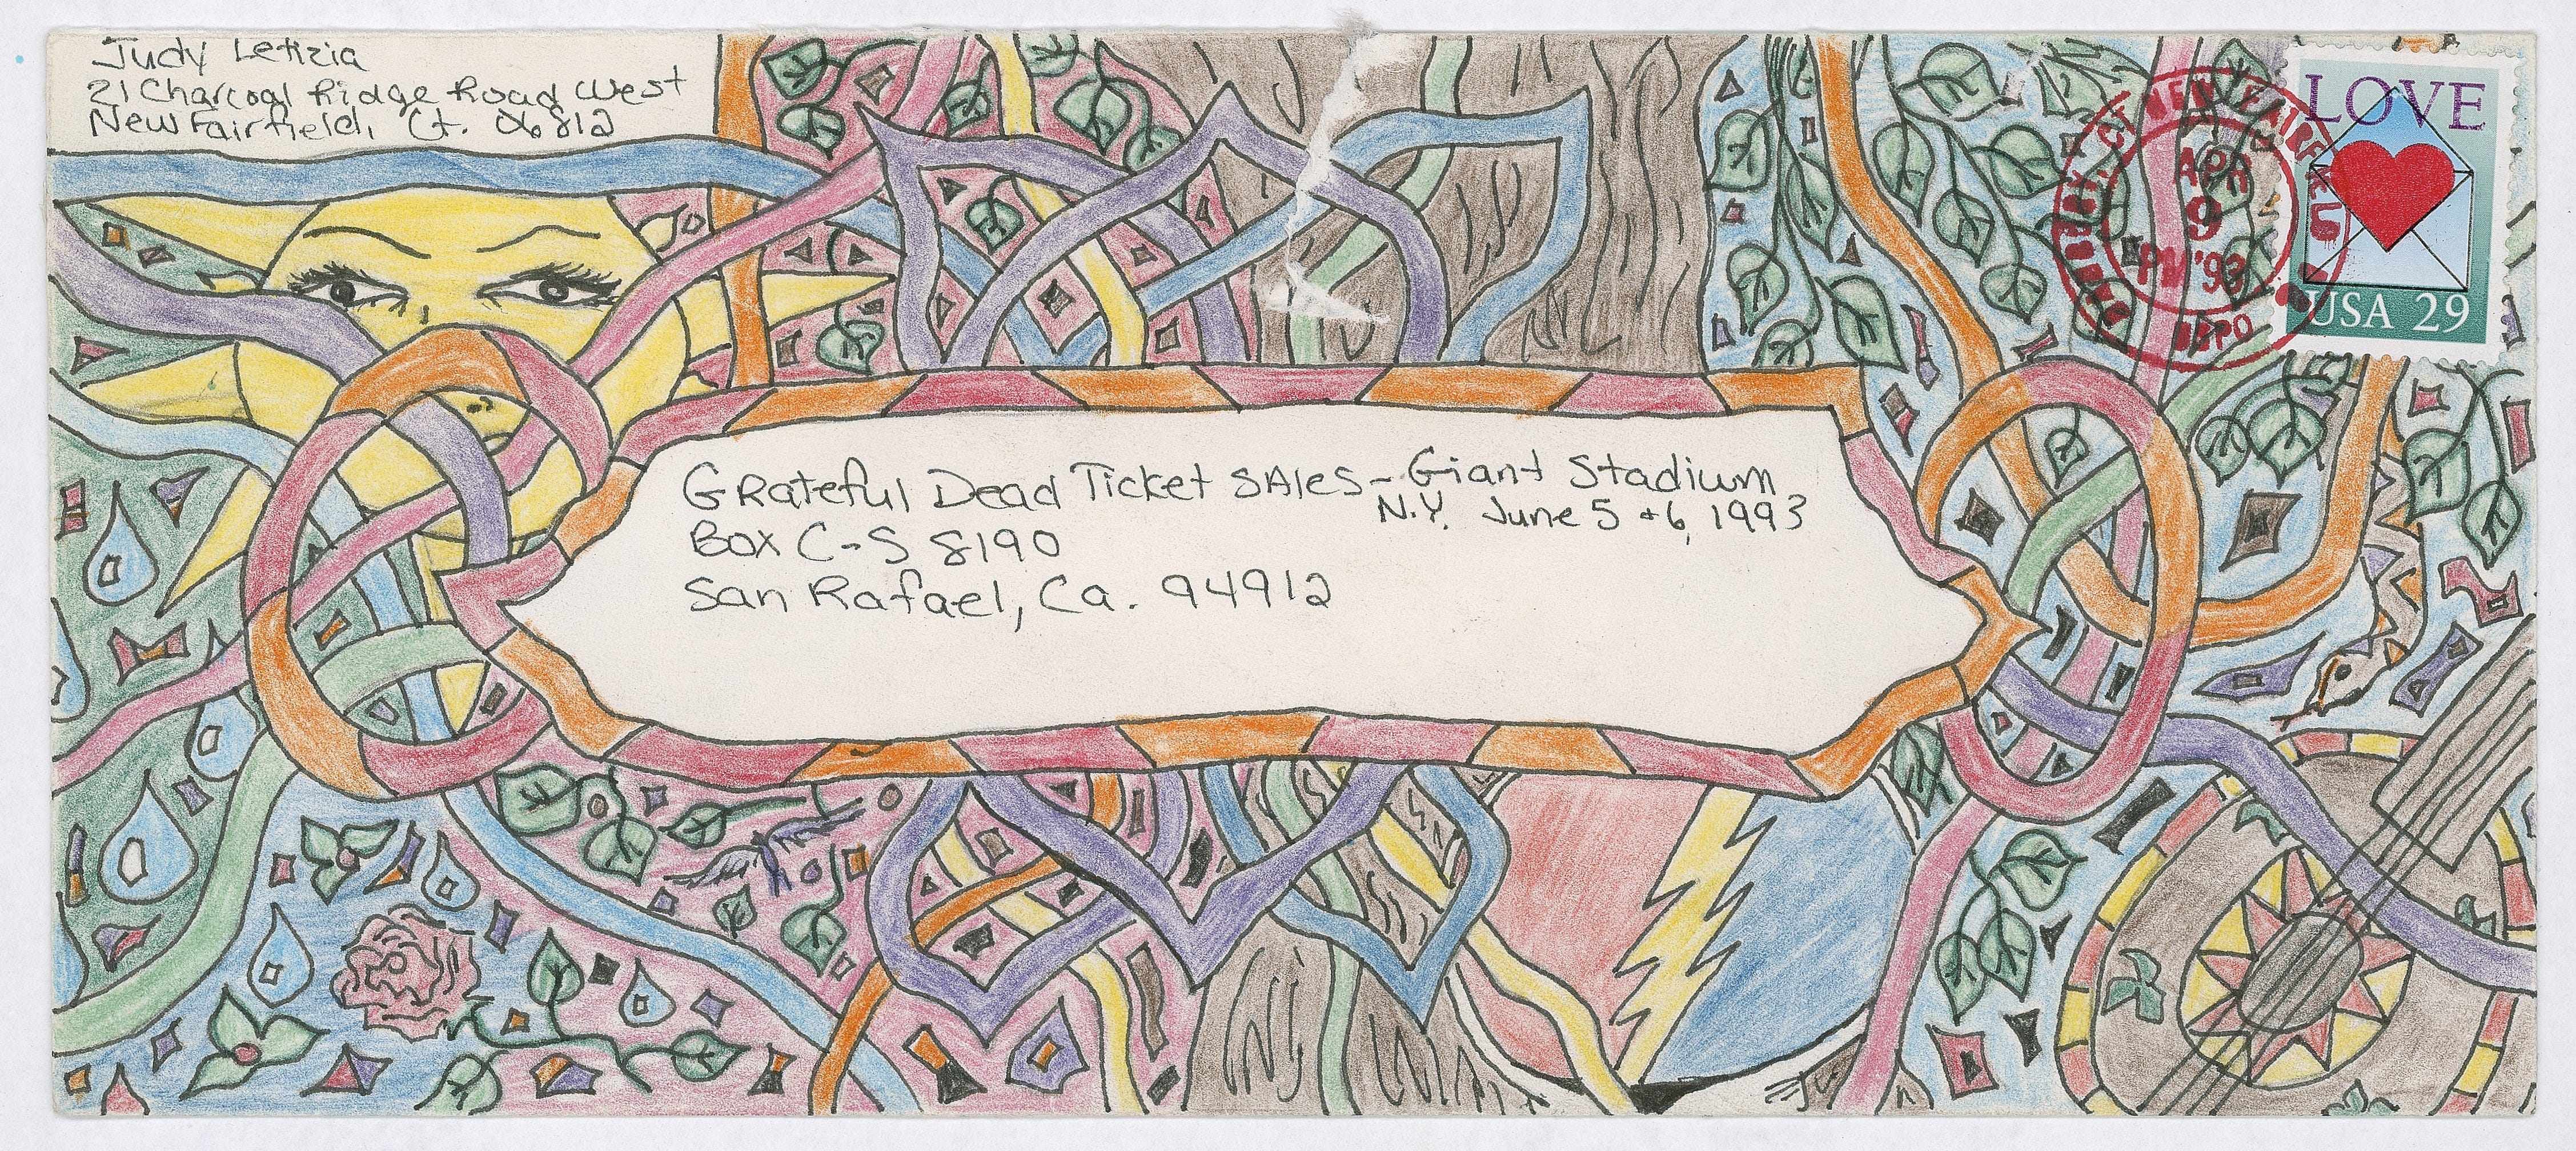 Judy Letizia
21 Charcoal Ridge Road West
New Fairfield, Ct. 06812
LOVE
USA 29
APR
9
PM '93
Grateful Dead Ticket SAles - Giant Stadium
N.Y. June 5 + 6, 1993
Box C-S 8190
San Rafael, Ca. 94912